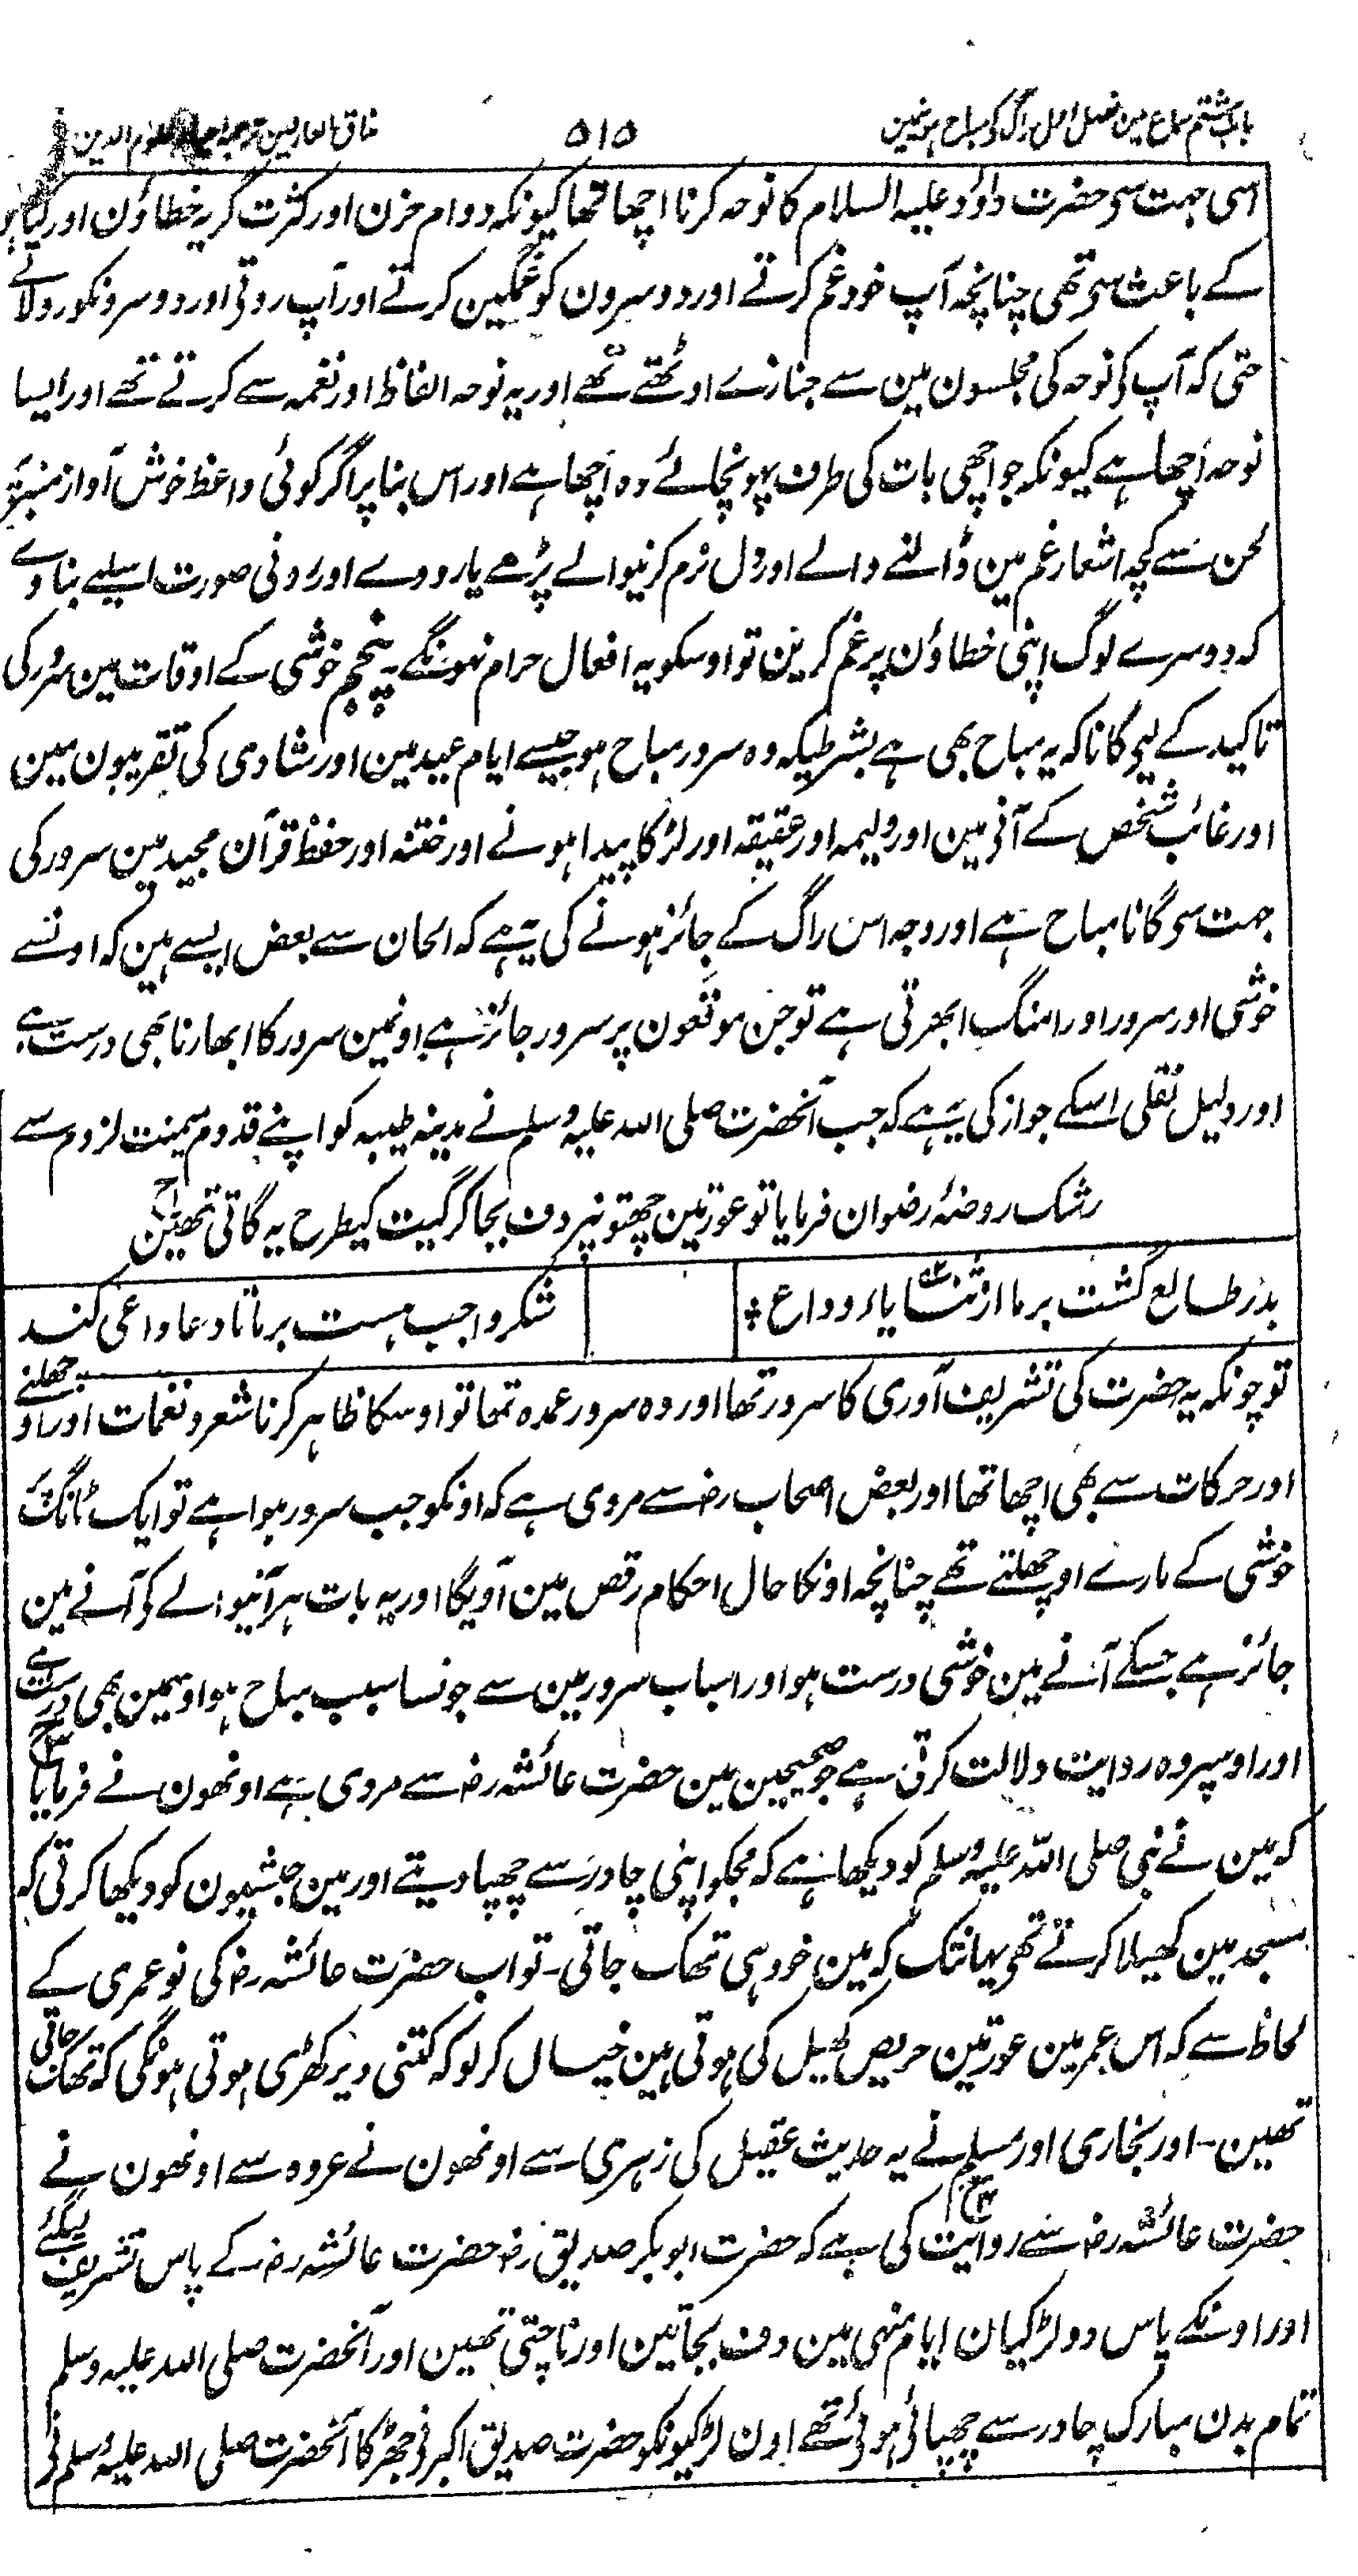 باب ہشتم سماع مین فصل اول راگ کی مباح ہونیمین
۵۱۵
مذاق العارفین ترجمہ احیاء علوم الدین
اسی جہت سی حضرت داؤد علیہ السلام کا نوحہ کرنا اچھا تھا کیونکہ دوام حزن اور کثرت گریہ خطاؤن اور گناہو
کے باعث سی تھی چنانچہ آپ خود غم کرتے اور دوسرون کو غمگین کرتے اور آپ روتی اور دوسرونکو رولاتے
حتی کہ آپ کی نوحہ کی مجلسون مین سے جنازے اوٹھتے تھے اور یہ نوحہ الفاظ اور نغمہ سے کرتے تھے اور ایسا
نوحہ اچھا ہے کیونکہ جو اچھی بات کی طرف پہونچائے وہ اچھا ہے اور اس بنا پر اگر کوئی واعظ خوش آواز منبر پر
لحن سے کچہ اشعار غم مین ڈالنے والے اور دل نرم کرنیوالے پڑھے یا رووے اور رونی صورت اسلیے بناوے
کہ دوسرے لوگ اپنی خطاؤن پر غم کرین تو اوسکو یہ افعال حرام نہونگے پنجم خوشی کے اوقات مین سرور کی
تاکید کے لیی گانا کہ یہ مباح بھی ہے بشرطیکہ وہ سرور مباح ہو جیسے ایام عید مین اور شادی کی تقریبون مین
اور غائب شخص کے آنی مین اور ولیمہ اور عقیقہ اور لڑکا پیدا ہونے اور ختنہ اور حفظ قرآن مجید مین سرور کی
جہت سی گانا مباح ہے اور وجہ اس راگ کے جائز ہونے کی یہ ہے کہ الحان سے بعض ایسے ہین کہ اونسے
خوشی اور سرور اور امنگ ابھرتی ہے تو جن موقعون پر سرور جائز ہے اونمین سرور کا ابھارنا بھی درست ہے
اور دلیل نقلی اسکے جواز کی یہ ہے کہ جب آنحضرت صلی اللہ علیہ وسلم نے مدینہ طیبہ کو اپنے قدوم میمنت لزوم سے
رشک روضۂ رضوان فرمایا تو عورتین چھتونپر دف بجا کر گیت کیطرح یہ گاتی تھین
بدر طالع گشت بر ما از ثنیات وداع
شکر واجب ہست بر ما تا دعا داعی کند
تو چونکہ یہ حضرت کی تشریف آوری کا سرور تھا اور وہ سرور عمدہ تھا تو اوسکا ظاہر کرنا شعر و نغمات اور اوچھلنے
اور حرکات سے بھی اچھا تھا اور بعض اصحاب رض سے مروی ہے کہ اونکو جب سرور ہوا ہے تو ایک ٹانگ پر
خوشی کے مارے اوچھلتے تھے چنانچہ اونکا حال احکام رقص مین آویگا اور یہ بات ہر آنیوالے کی آنے مین
جائز ہے جسکے آنے مین خوشی درست ہو اور اسباب سرور مین سے جونسا سبب مباح ہو اوسمین بھی درست ہے
اور اوسپر وہ روایت دلالت کرتی ہے جو صحیحین مین حضرت عائشہ رض سے مروی ہے اونھون نے فرمایا
کہ مین نے نبی صلی اللہ علیہ وسلم کو دیکھا ہے کہ مجکو اپنی چادر سے چھپا دیتے اور مین حبشیون کو دیکھا کرتی کہ
مسجد مین کھیلا کرتے تھی یہانتک کہ مین خود ہی تھک جاتی۔ تو اب حضرت عائشہ رض کی نو عمری کے
لحاظ سے کہ اس عمر مین عورتین حریص کھیل کی ہوتی ہین خیال کر لو کہ کتنی دیر کھڑی ہوتی ہونگی کہ تھک جاتی
تھین۔ اور بخاری اور مسلم نے یہ حدیث عقیل کی زہری سے اونھون نے عروہ سے اونھون نے
حضرت عائشہ رض سے روایت کی ہے کہ حضرت ابوبکر صدیق رض حضرت عائشہ رض کے پاس تشریف لیگئے
اور اونکے پاس دو لڑکیان ایام منی مین دف بجاتین اور ناچتی تھین اور آنحضرت صلی اللہ علیہ وسلم
تمام بدن مبارک چادر سے چھپائی ہوئی تھے اون لڑکیونکو حضرت صدیق اکبر نی جھڑکا آنحضرت صلی اللہ علیہ وسلم نی